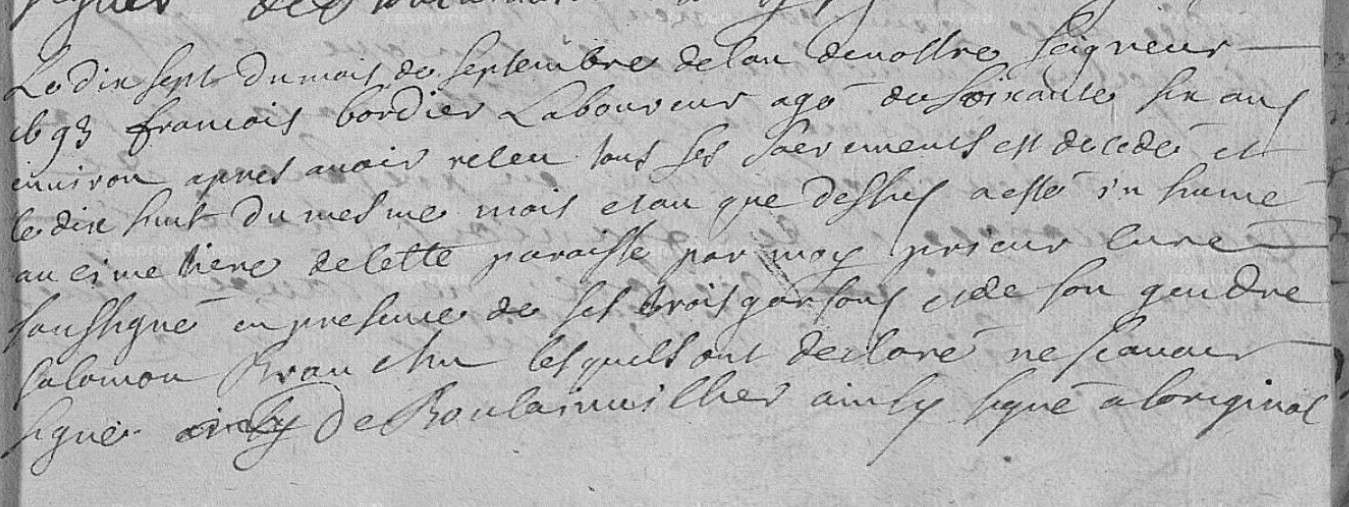 Le dix sept du mois de septembre de lan de nostre Seigneur
1693 francois bordier Laboureur agé de soixante six ans
environ apres avoir receu tous ses sacrements est decedé et
le dix huit du mesme mois et an que dessus a esté in humé
au cimetiere de cette paroisse par moy prieur curé
soussigné en presence de ses trois garsons et de son gendre
salomon lesquels ont declaré ne scavoir
signer de Boulainvillier ainsy signé a loriginal